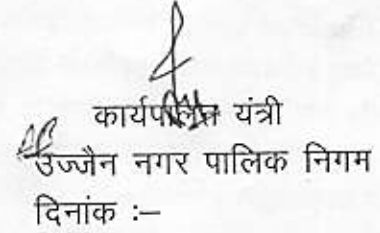 कार्यपालन यंत्री
उज्जैन नगर पालिक निगम
दिनांक :–